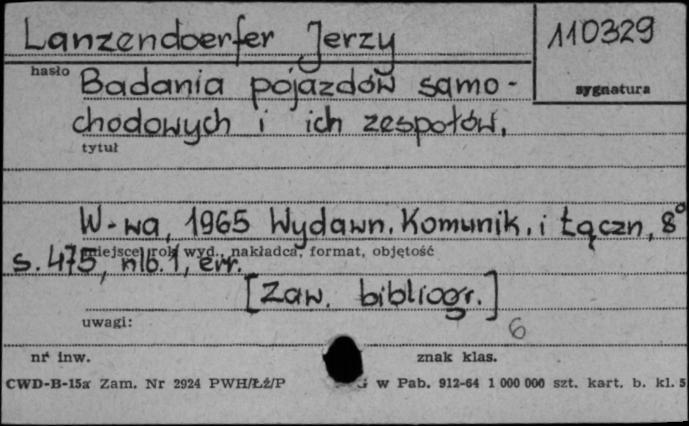 Lanzendoerfer Jerzy
110329
hasło
sygnatura
Badania pojazdów samo-
chodowych i ich zespołów.
tytuł
W-wa, 1965 Wydawn. Komunik. i Łączn, 8°
miejsce, rok wyd., nakładca, format, objętość
s. 475, nlb. 1, err.
[Zaw. bibliogr.]
uwagi:
6
nr inw.
znak klas.
CWD-B-15a Zam. Nr 2924 PWH/Łź/P G w Pab. 912-64 1 000 000 szt. kart. b. kl. 5